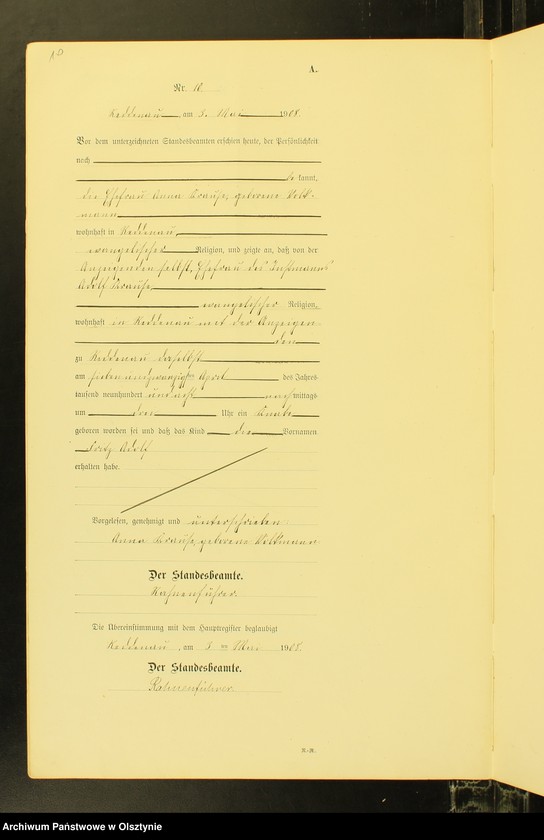 10
A.
Nr. 10
Reddenau, am 5. Mai 1908.
Vor dem unterzeichneten Standesbeamten erschien heute, der Persönlichkeit
nach
be kannt,
die Ehefrau Anna Krause, geborene Volk-
mann
wohnhaft in Reddenau,
evangelischer Religion, und zeigte an, daß von der
Anzeigenden selbst, Ehefrau des Instmanns
Adolf Krause,
evangelischer Religion,
wohnhaft in Reddenau mit der Anzeigen
den
zu Reddenau daselbst
am siebenundzwanzigsten April des Jahres
tausend neunhundert und acht nachmittags
um Uhr ein Knabe
geboren worden sei und daß das Kind die Vornamen
Fritz Adolf
erhalten habe.
Vorgelesen, genehmigt und unterschrieben
Anna Krause, geborene Volkmann
Der Standesbeamte.
Die Übereinstimmung mit dem Hauptregister beglaubigt
Reddenau, am 5 ten Mai 1908.
Der Standesbeamte.
Archiwum Państwowe w Olsztynie